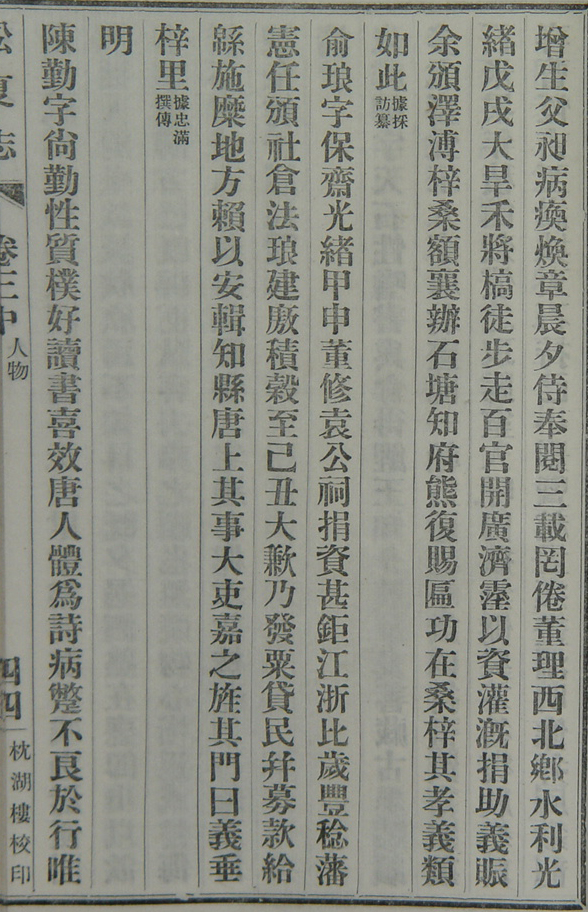 增生父昶病瘓煥章晨夕侍奉閱三載罔倦董理西北鄉水利光
緒戊戌大旱禾將槁徒步走百官開廣濟霪以資灌溉捐助義賑
余頒澤溥梓桑額襄辦石塘知府熊復賜匾功在桑梓其孝義類
如此據採訪纂
俞琅字保齋光緒甲申董修袁公祠捐資甚鉅江浙比歲豐稔藩
憲任頒社倉法琅建廒積穀至己丑大歉乃發粟貸民幷募款給
緜施糜地方賴以安輯知縣唐上其事大吏嘉之旌其門曰義垂
梓里據忠滿撰傳
明
陳勤字尙勤性質樸好讀書喜效唐人體爲詩病躄不良於行唯
志 卷三中 人物 四四 枕湖樓校印